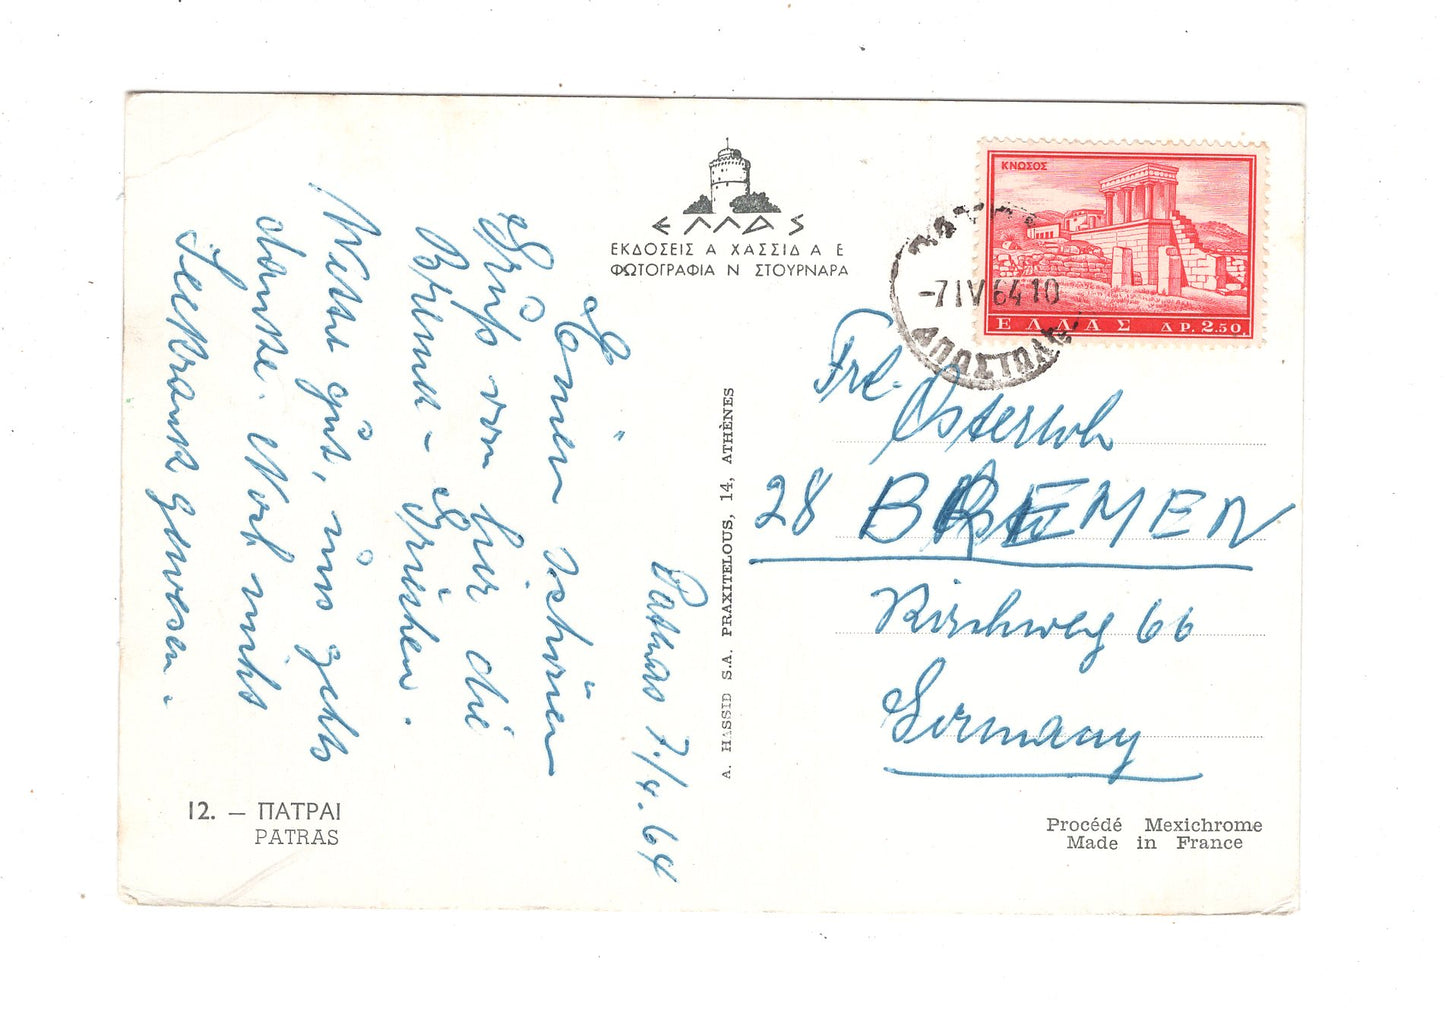 ΕΛΛΑΣ
ΕΚΔΟΣΕΙΣ Α ΧΑΣΣΙΔ Α Ε
ΦΩΤΟΓΡΑΦΙΑ Ν ΣΤΟΥΡΝΑΡΑ
ΚΝΩΣΟΣ
ΕΛΛΑΣ ΔΡ. 2.50.
-7 IV 64 10
ΑΠΟΣΤΟΛ
Patras 7./4.64
Einen schönen
Gruß von hier die
- Griechen.
gut, uns gehts
danke. Noch nicht
Seekrank gewesen.
A. HASSID S.A. PRAXITELOUS, 14, ATHÈNES
Frl.
28 BREMEN
Kirchweg 66
Germany
12. – ΠΑΤΡΑΙ
PATRAS
Procédé Mexichrome
Made in France